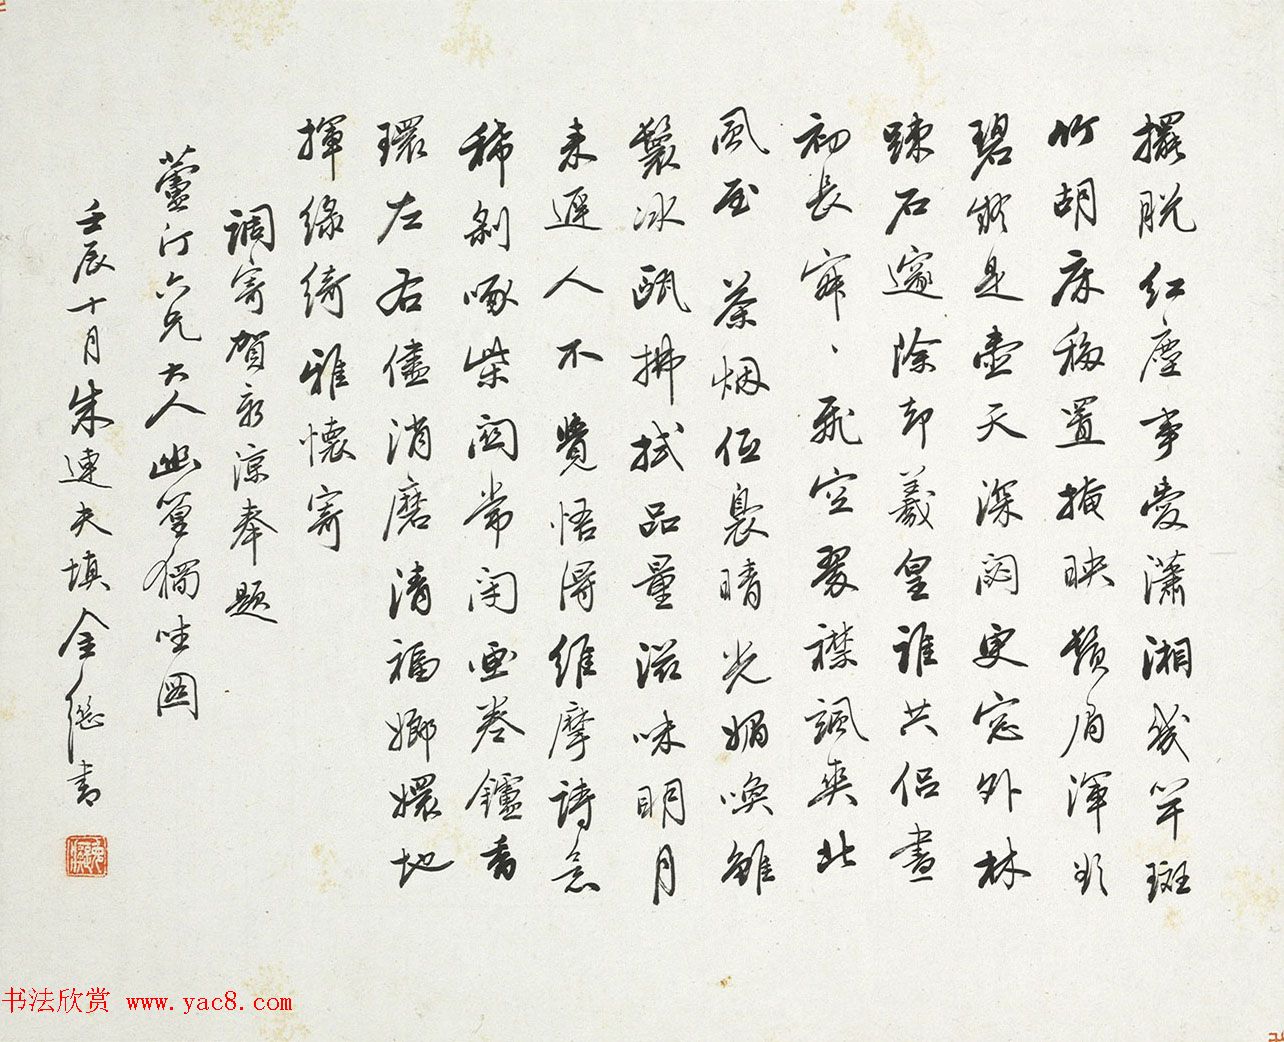 擺脫紅塵事愛瀟湘幾竿斑
竹胡床移置掩映鬚眉渾欲
碧疑是壺天深閟更窓外林
疎石邃除却羲皇誰共侶晝
初長寂、飛空翠襟颯爽北
風至 茶烟低裊晴光媚喚雛
鬟冰甌拂拭品量滋味明月
未遲人不覺悟得維摩詩意
稀剝啄柴関常閉画卷鑪香
環左右儘消磨清福嫏嬛地
揮綠綺雅懷寄
調寄賀新涼奉題
蘆汀六兄大人幽篁獨坐圖
壬辰十月朱連夫填全繼書
书法欣赏 www.yac8.com